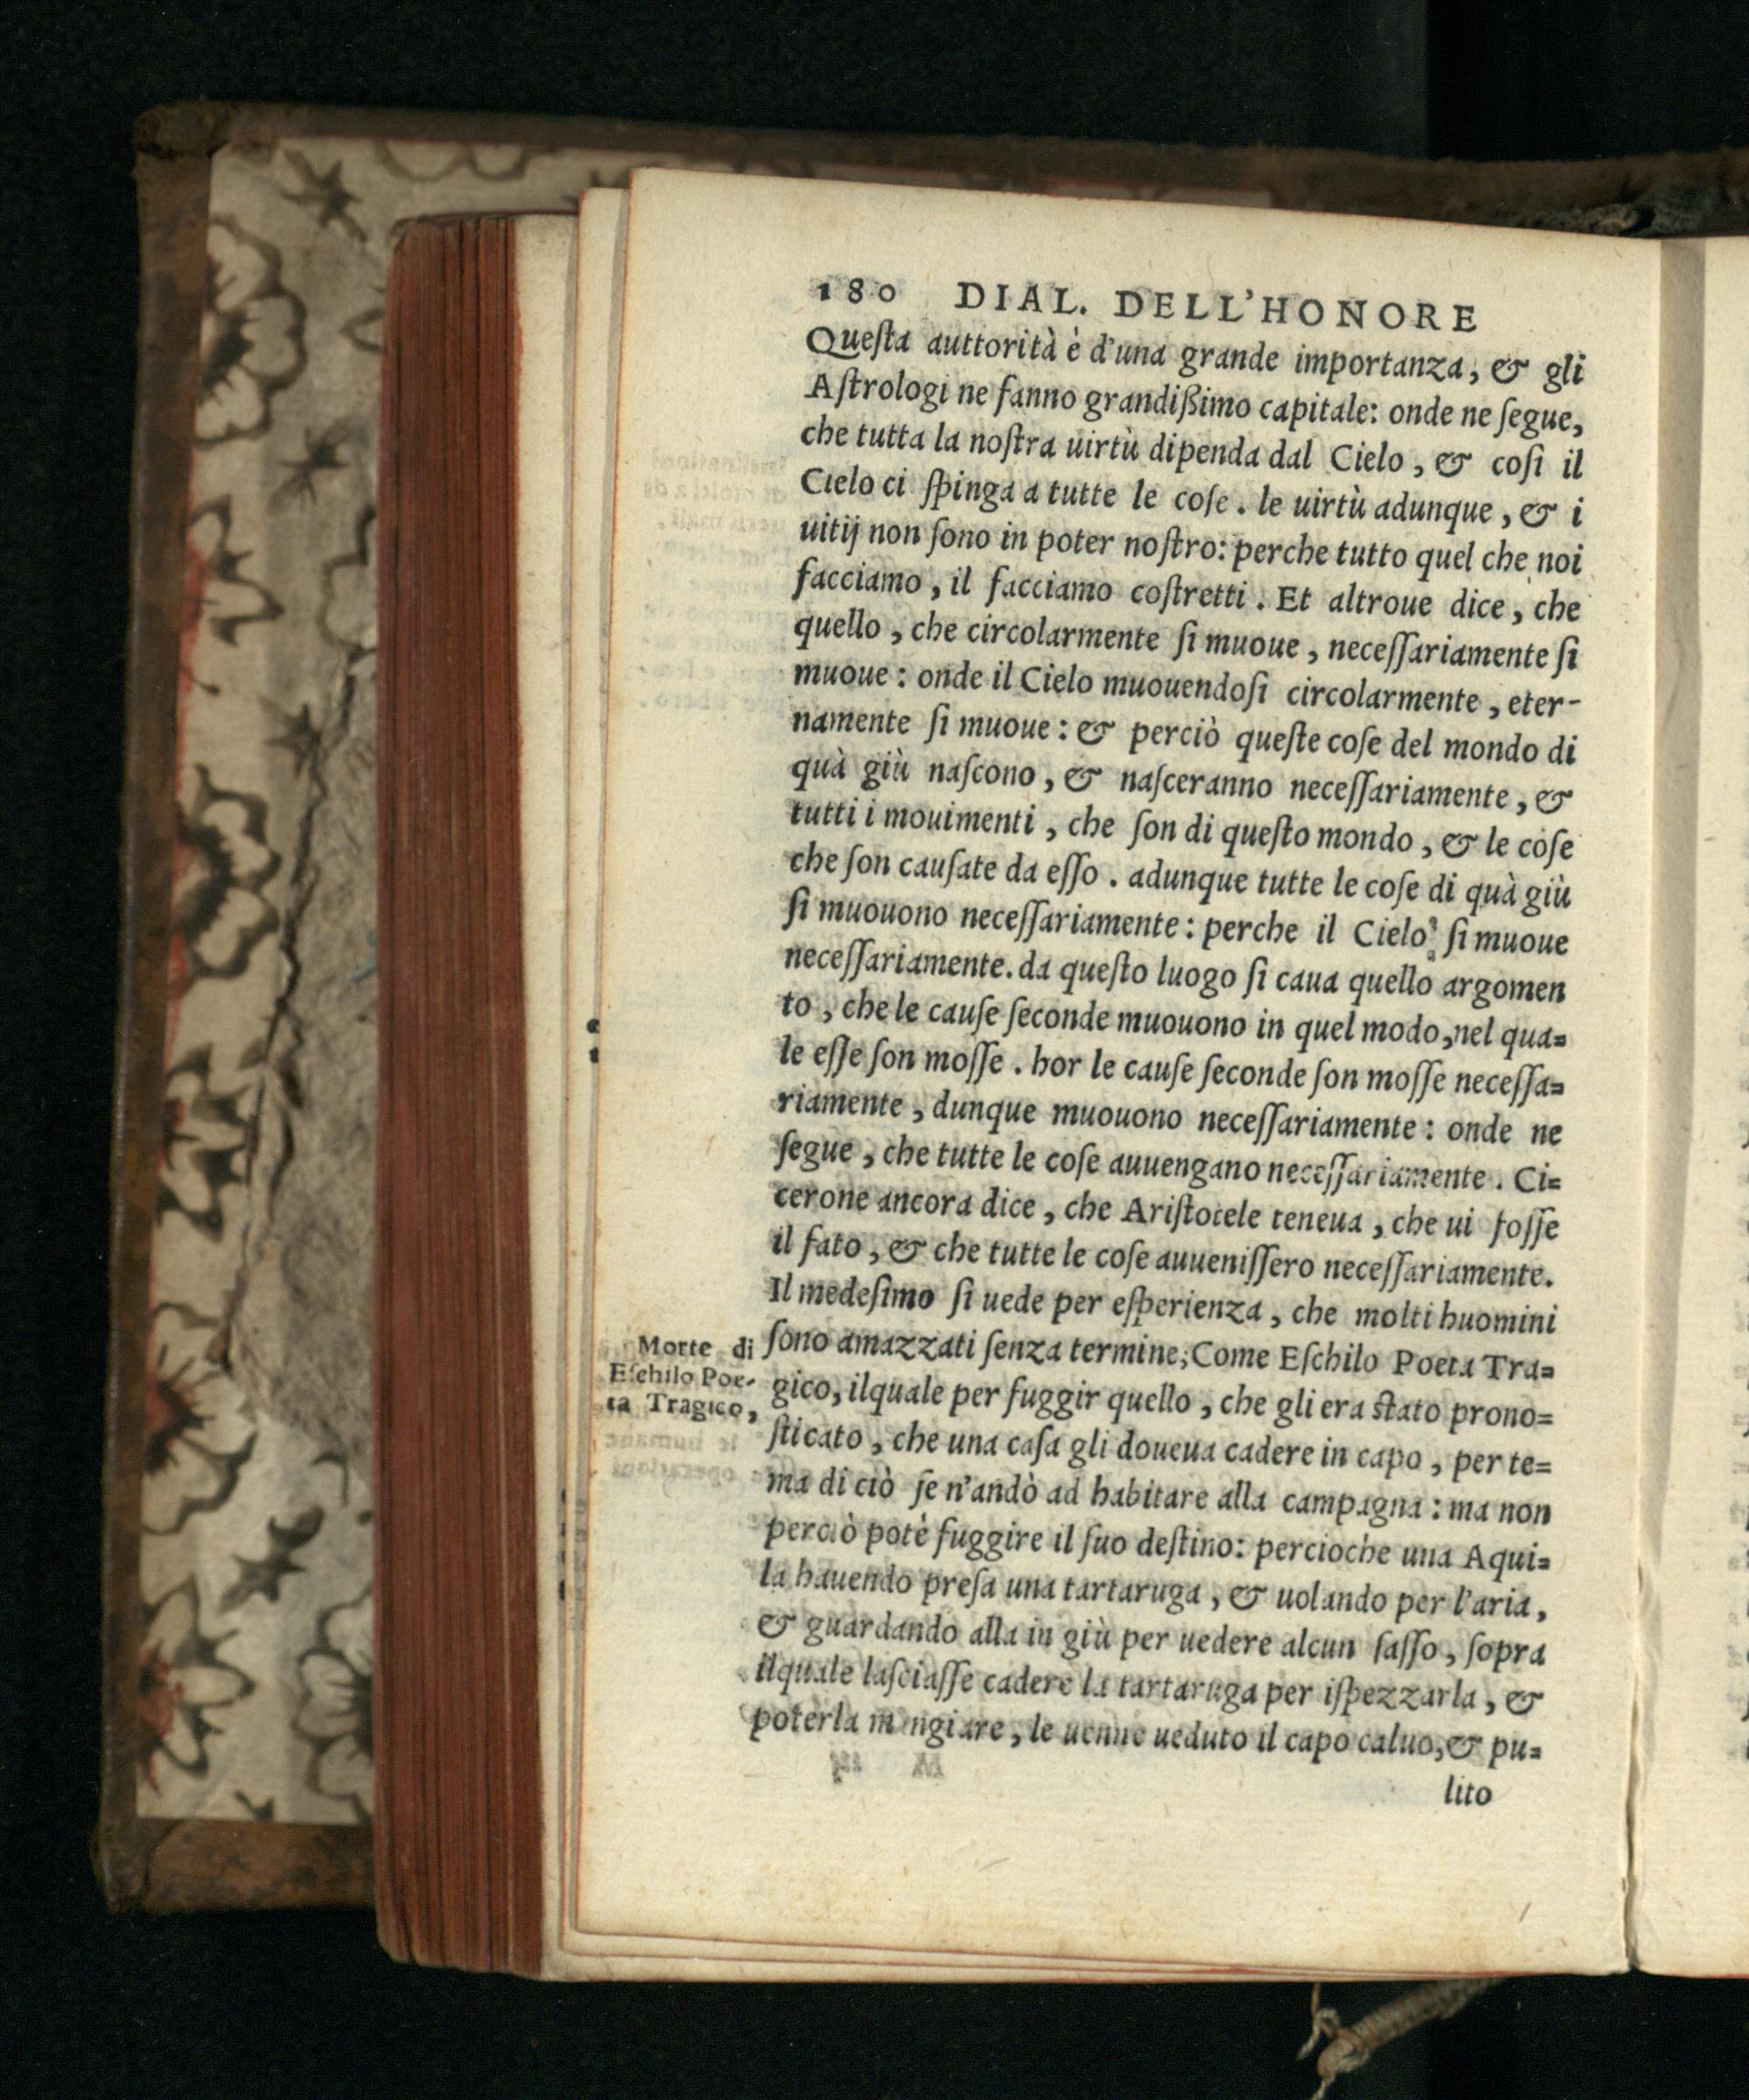 180 DIAL. DELL'HONORE
Queſta auttorità è d'una grande importanza, & gli
Aſtrologi ne fanno grandißimo capitale: onde ne ſegue,
che tutta la noſtra uirtù dipenda dal Cielo, & coſi il
Cielo ci ſpinga a tutte le coſe. le uirtù adunque, & i
uitij non ſono in poter noſtro: perche tutto quel che noi
facciamo, il facciamo coſtretti. Et altroue dice, che
quello, che circolarmente ſi muoue, neceſſariamente ſi
muoue: onde il Cielo muouendoſi circolarmente, eter-
namente ſi muoue: & perciò queſte coſe del mondo di
quà giù naſcono, & naſceranno neceſſariamente, &
tutti i mouimenti, che ſon di queſto mondo, & le coſe
che ſon cauſate da eſſo. adunque tutte le coſe di quà giù
ſi muouono neceſſariamente: perche il Cielo ſi muoue
neceſſariamente. da queſto luogo ſi caua quello argomen
to, che le cauſe ſeconde muouono in quel modo, nel qua=
le eſſe ſon moſſe. hor le cauſe ſeconde ſon moſſe neceſſa=
riamente, dunque muouono neceſſariamente: onde ne
ſegue, che tutte le coſe auuengano neceſſariamente. Ci=
cerone ancora dice, che Ariſtotele teneua, che ui foſſe
il fato, & che tutte le coſe auueniſſero neceſſariamente.
Il medeſimo ſi uede per eſperienza, che molti huomini
ſono amazzati ſenza termine; Come Eſchilo Poeta Tra=
gico, ilquale per fuggir quello, che gli era ſtato prono=
ſticato, che una caſa gli doueua cadere in capo, per te=
ma di ciò ſe n'andò ad habitare alla campagna: ma non
perciò potè fuggire il ſuo deſtino: percioche una Aqui=
la hauendo preſa una tartaruga, & uolando per l'aria,
& guardando alla in giù per uedere alcun ſaſſo, ſopra
ilquale laſciaſſe cadere la tartaruga per iſpezzarla, &
poterla mangiare, le uenne ueduto il capo caluo, & pu=
lito
Morte di
Eſchilo Poe-
ta Tragico,